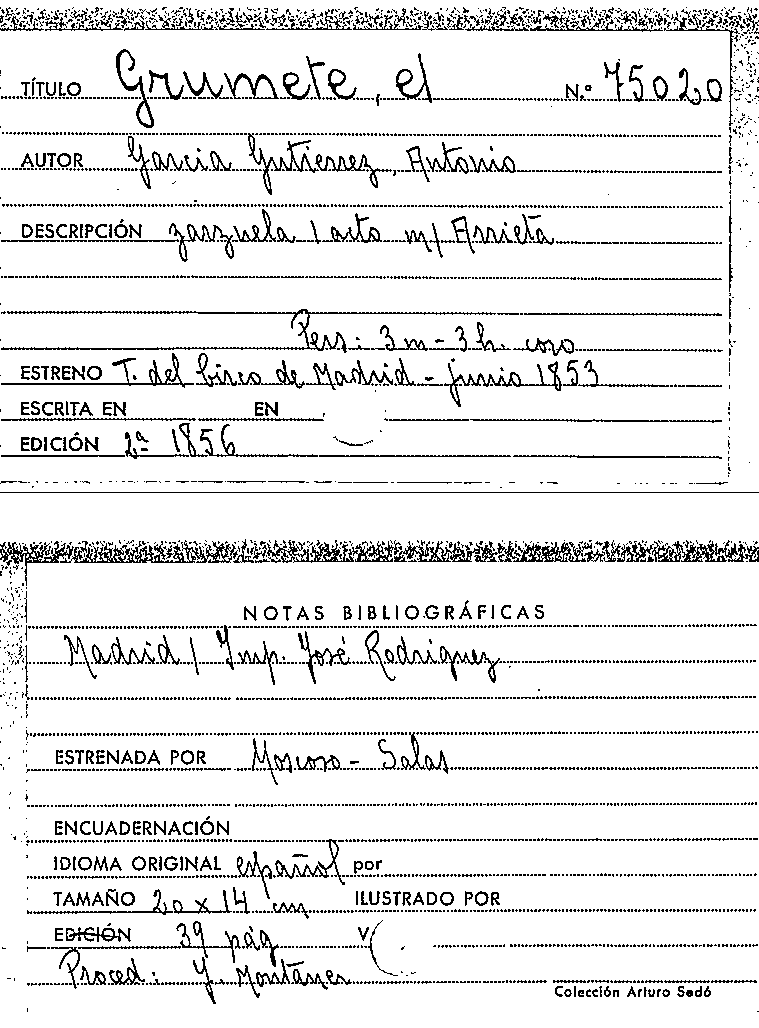 TÍTULO Grumete, el N.º 75020
AUTOR Garcia Gutierrez, Antonio
DESCRIPCIÓN zarzuela 1 acto m/ Arrieta
Pers: 3 m - 3 h. coro
ESTRENO T. del Circo de Madrid - junio 1853
ESCRITA EN EN
EDICIÓN 2ª 1856
NOTAS BIBLIOGRÁFICAS
Madrid / Imp. José Rodriguez
ESTRENADA POR Moscoso - Salas
ENCUADERNACIÓN
IDIOMA ORIGINAL español por
TAMAÑO 20 x 14 cm ILUSTRADO POR
EDICIÓN 39 pág V
Proced: Y. Montaner
Colección Arturo Sedó